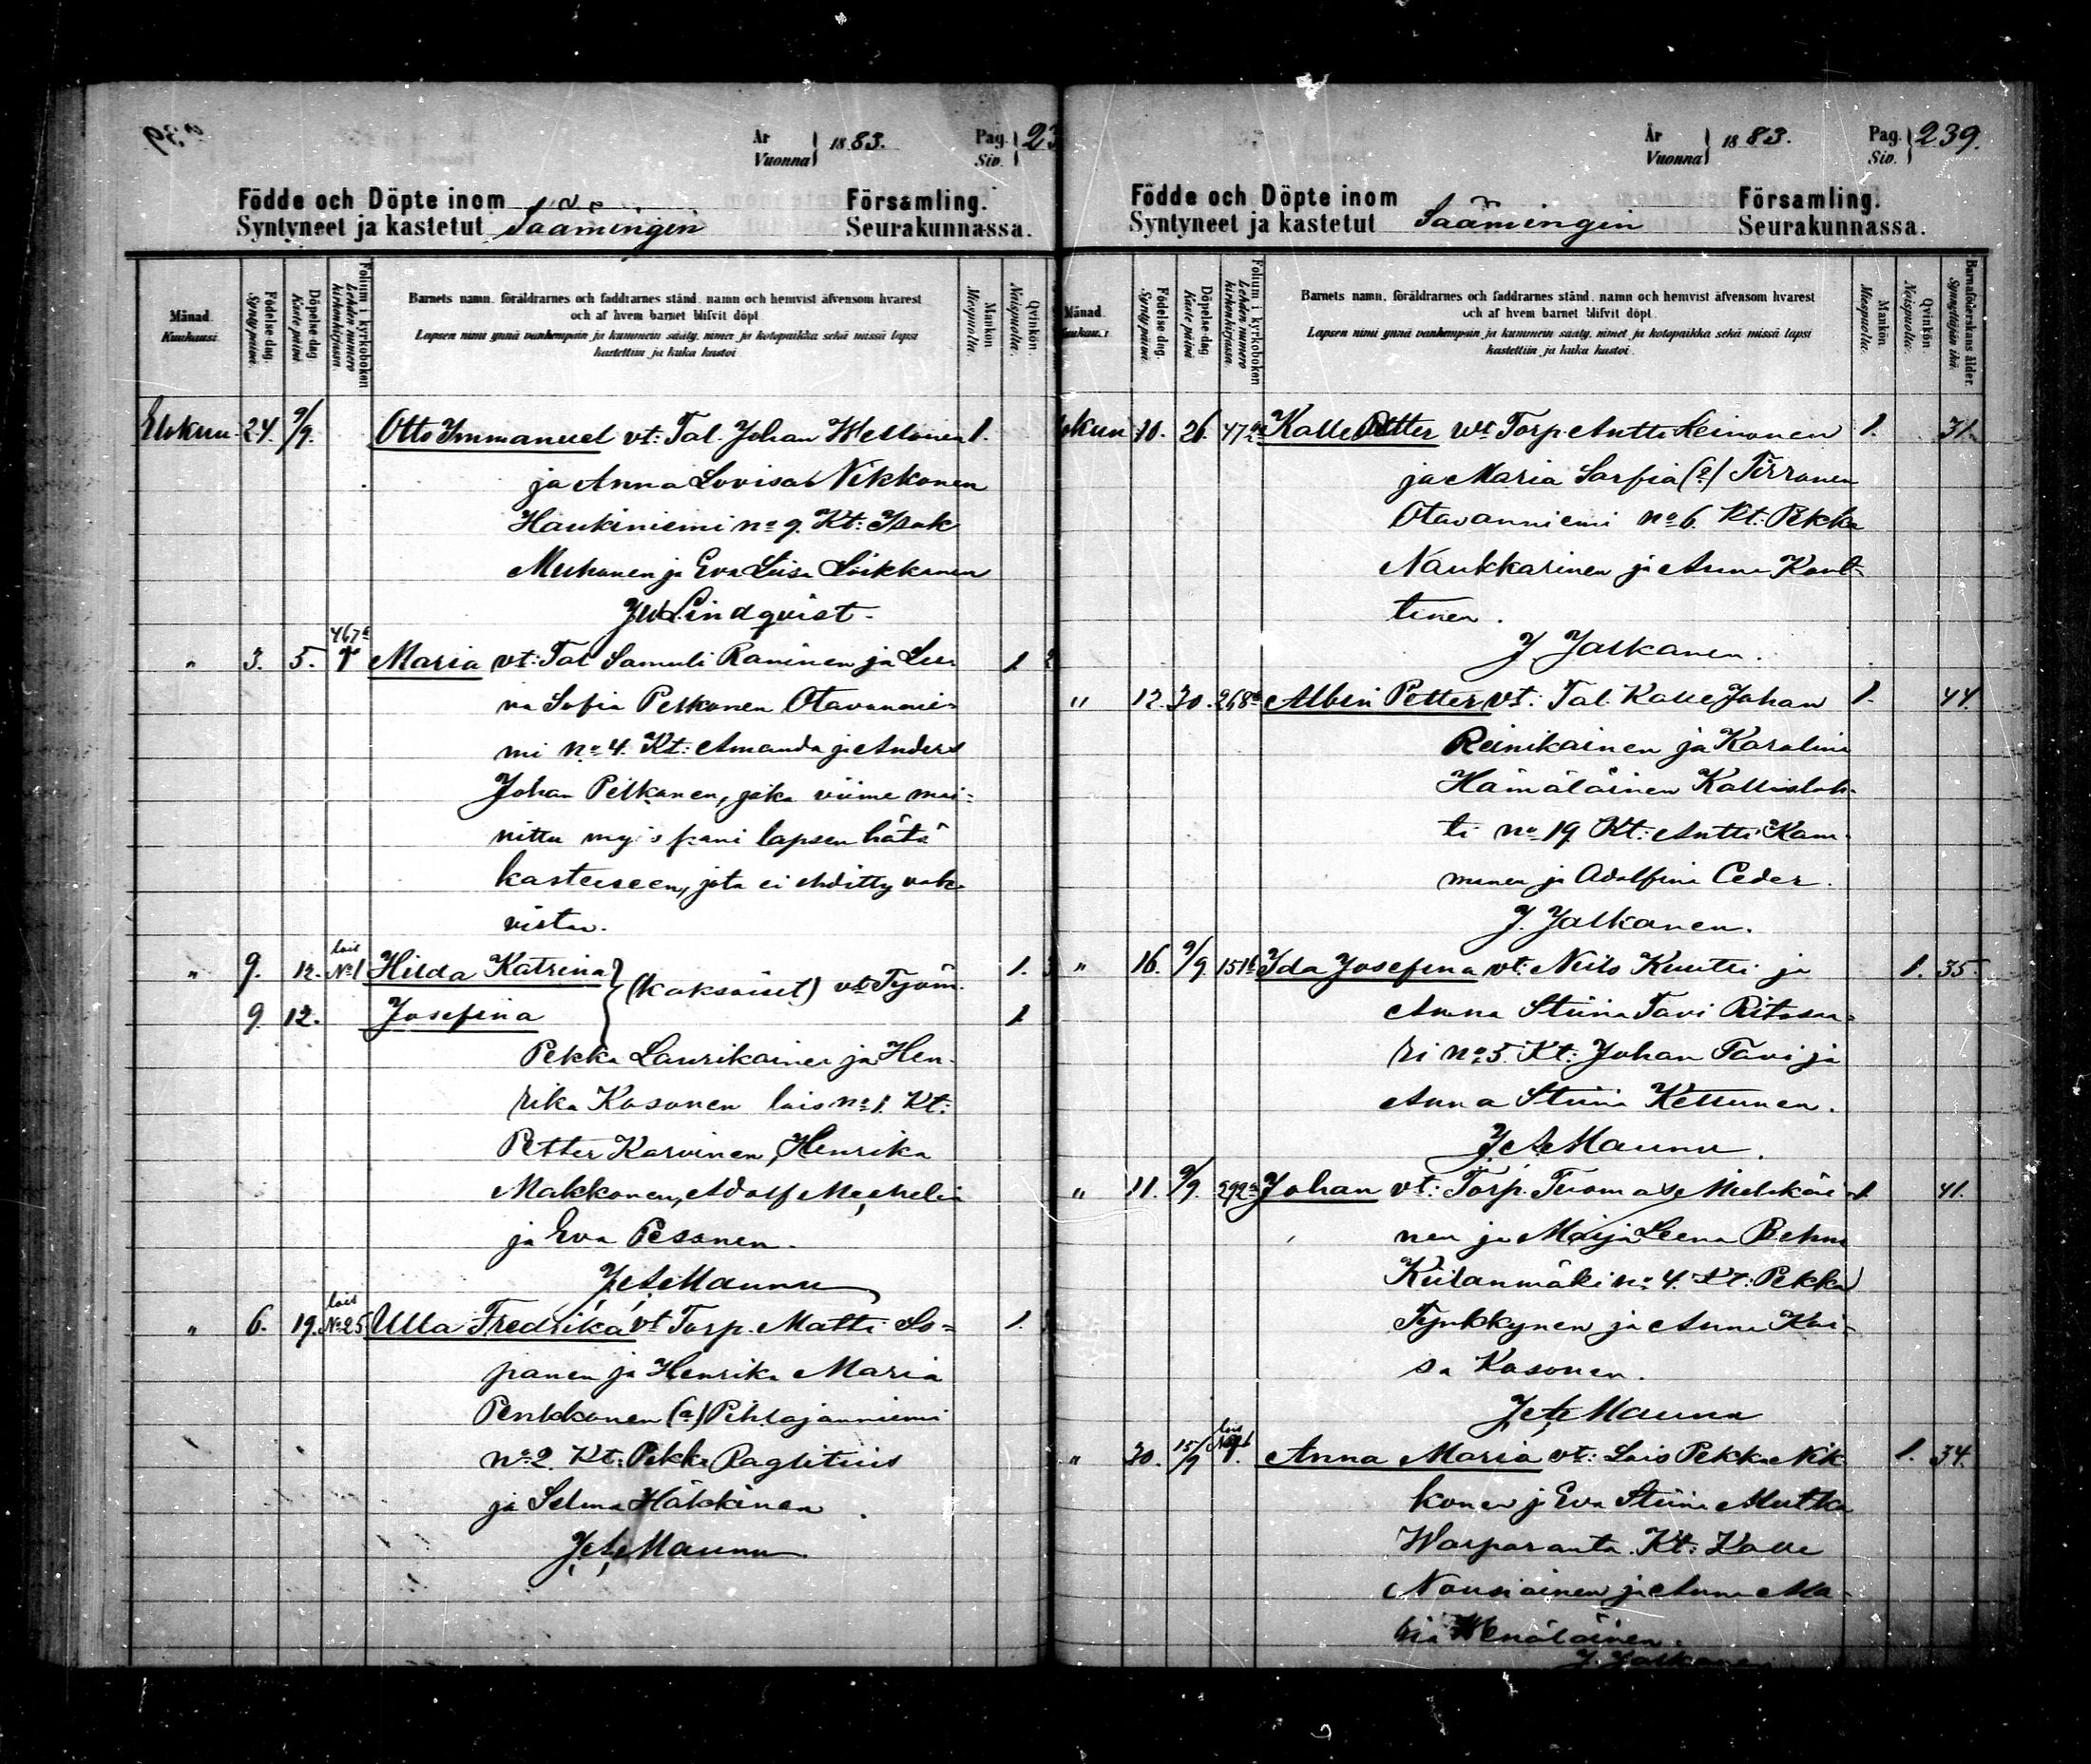 År
Vuonna 1883.
Pag.
Siv. 23
Födde och Döpte inom
Syntyneet ja kastetut Säämingin
Församling.
Seurakunnassa.
Månad
Kuukausi
Födelse-dag
Syntypäivä.
Döpelse-dag
Kaste päivä.
Folium i kyrkoboken
Lehden numero kirkonkirjassa.
Barnets namn, föräldrarnes och faddrarnes stånd, namn och hemvist äfvensom hvarest
och af hvem barnet blifvit döpt.
Lapsen nimi ynnä vanhempain ja kummein sääty, nimet ja kotopaikka sekä missä lapsi
kastettiin ja kuka kastoi.
Mankön
Miespuolta.
Qvinkön.
Naispuolta.
Elokuu 24. 9/9. Otto Immanuel vt: Tal. Johan Wellonen 1.
ja Anna Lovisa Nikkonen
Haukiniemi no 9. Kt: Isak
Muhonen ja Eva Liisa Löikkanen
JW Lindqvist.
" 3. 5. 467a † Maria vt: Tal Samuli Raninen ja Lee- 1
na Sofia Pelkonen Otavannie-
mi no 4. Kt: Amanda ja Anders
Johan Pelkonen, joka viime mai-
nittu myös pani lapsen hätä
kasteeseen, jota ei ehditty vah-
vistaa.
" 9. 12. lois No 1 Hilda Katrina (kaksoiset) vt Työm. 1.
9. 12. Josefina 1
Pekka Laurikainen ja Hen-
rika Kosonen lois no 1. Kt:
Petter Karvinen, Henrika
Makkonen, Adolf Mechelin
ja Eva Pesonen.
J. A. Maunu
" 6. 19. lois No 25 Ulla Fredrika vt Torp. Matti So- 1.
panen ja Henrika Maria
Penkkonen (a) Pihlajaniemi
no 2. Kt: Pekka
ja Selma Häkkänen.
J. A. Maunu
År
Vuonna 1883.
Pag.
Siv. 239.
Födde och Döpte inom
Syntyneet ja kastetut Säämingin
Församling.
Seurakunnassa.
Månad
Kuukausi
Födelse-dag.
Syntypäivä.
Döpelse-dag
Kaste päivä.
Folium i kyrkoboken
Lehden numero kirkonkirjassa.
Barnets namn, föräldrarnes och faddrarnes stånd, namn och hemvist äfvensom hvarest
och af hvem barnet blifvit döpt.
Lapsen nimi ynnä vanhempain ja kummein sääty, nimet ja kotopaikka sekä missä lapsi
kastettiin ja kuka kastoi.
Mankön
Miespuolta.
Qvinkön.
Naispuolta.
Barnaföderskans ålder.
Synnyttäjän ikä.
okuu 10. 26. Kalle Petter vt Torp. Antti Leinonen 1. 31.
ja Maria Sarfia (a) Tirronen
Otavanniemi no 6. Kt: Pekka
Naukkarinen ja Anna Kont-
tinen.
J Jalkanen.
" 12. 30. 268a Albin Petter vt: Tal. Kalle Johan 1. 44.
Reinikainen ja Karolina
Hämäläinen Kallislah-
ti no 19 Kt: Antti Kam-
munen ja Adolfina Ceder.
J. Jalkanen.
" 16. 9/9 151b Ida Josefina vt: Niilo Kuutti ja 1. 35.
Anna Stiina Tavi Ritosaa-
ri no 5. Kt: Johan Tavi ja
Anna Stiina Kettunen.
J A Maunu.
" 11. 9/9. 292a Johan vt: Torp. Tuomas Miehkäi- 1. 41.
nen ja Maija Leena Behm
Kiilanmäki no 4. Kt: Pekka
Tynkkynen ja Anna Kai-
sa Kosonen.
J. A. Maunu
" 30. 15/9 lois Anna Maria vt: Lois Pekka Nik- 1. 34.
konen ja Eva Stiina Mutka
Warparanta. Kt: Kalle
Nousiainen ja Anna Ma-
ria Wenäläinen.
J. Jalkanen